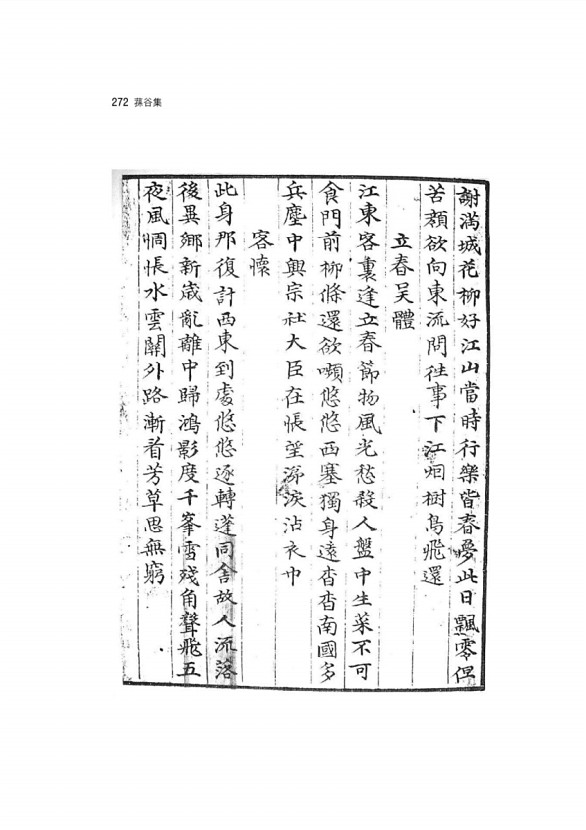 272 蓀谷集
謝滿城花柳好江山當時行樂皆春夢此日飄零但
苦顏欲向東流問徃事下江烟樹鳥飛還
立春吳體
江東客裏逢立春節物風光愁殺人盤中生菜不可
食門前柳條還欲嚬悠悠西塞獨身遠杳杳南國多
兵塵中興宗社大臣在悵望涕淚沾衣巾
客懷
此身那復計西東到處悠悠逐轉蓬同舍故人流落
後異鄉新歲亂離中歸鴻影度千峯雪殘角聲飛五
夜風惆悵水雲關外路漸看芳草思無窮